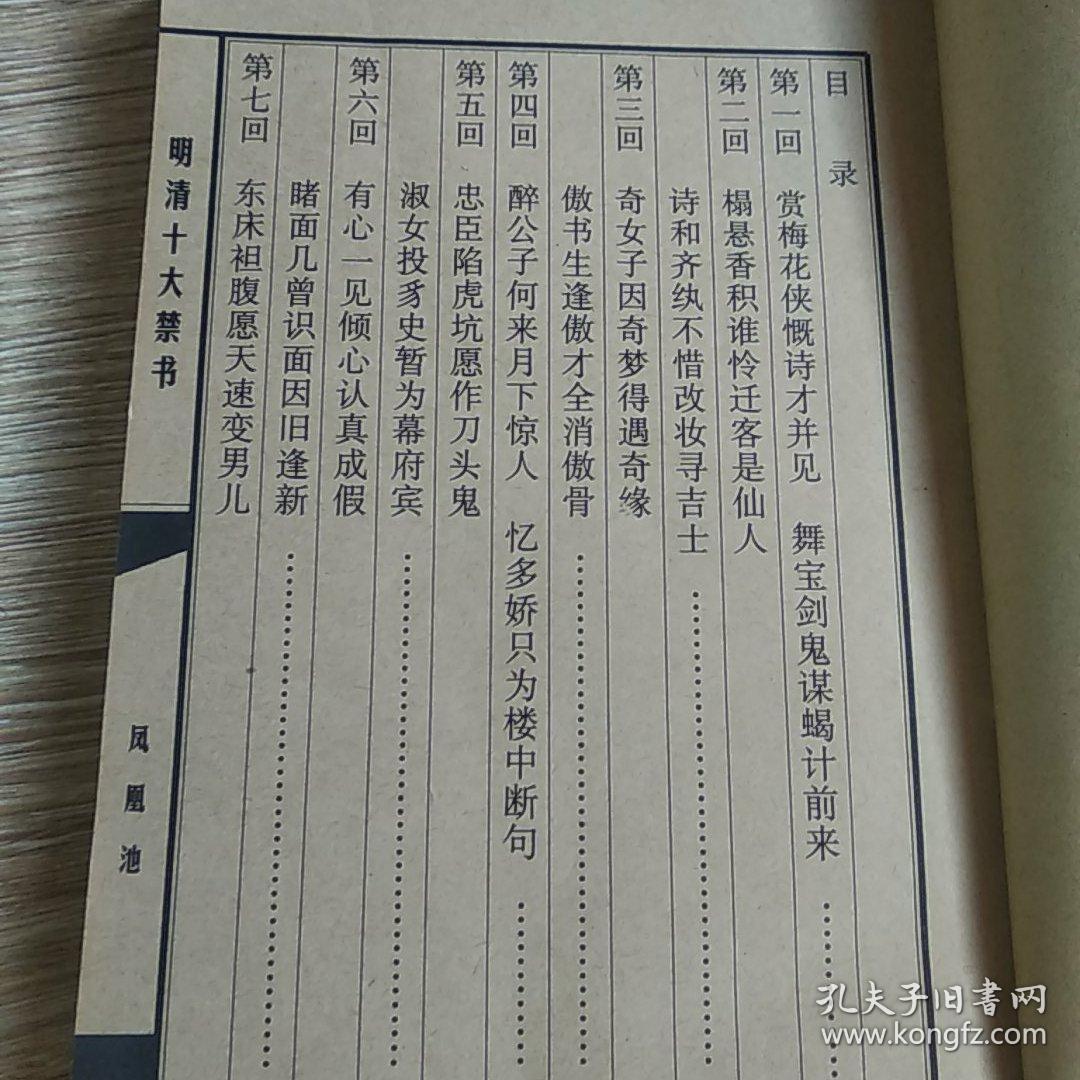 目 录
第一回 赏梅花侠慨诗才并见 舞宝剑鬼谋蝎计前来
第二回 榻悬香积谁怜迁客是仙人
诗和齐纨不惜改妆寻吉士
第三回 奇女子因奇梦得遇奇缘
傲书生逢傲才全消傲骨
第四回 醉公子何来月下惊人 忆多娇只为楼中断句
第五回 忠臣陷虎坑愿作刀头鬼
淑女投豸史暂为幕府宾
第六回 有心一见倾心认真成假
睹面几曾识面因旧逢新
第七回 东床袒腹愿天速变男儿
明清十大禁书
凤凰池
孔夫子旧書网
www.kongfz.com